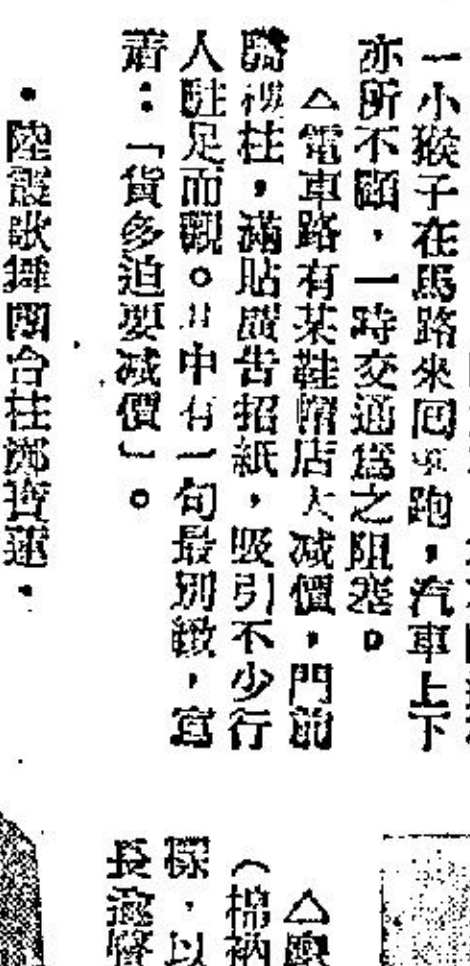 一小猴子在馬路來回跑，汽車上下
亦所不顧，一時交通爲之阻塞。
△電車路有某鞋帽店大減價，門前
騎樓柱，滿貼廣告招紙，吸引不少行
人駐足而觀。其中有一句最別緻，寫
着：「貨多迫要減價」。
•陸霞歌舞團台柱鄭寶蓮•
△
（棉衲
樑，以
長